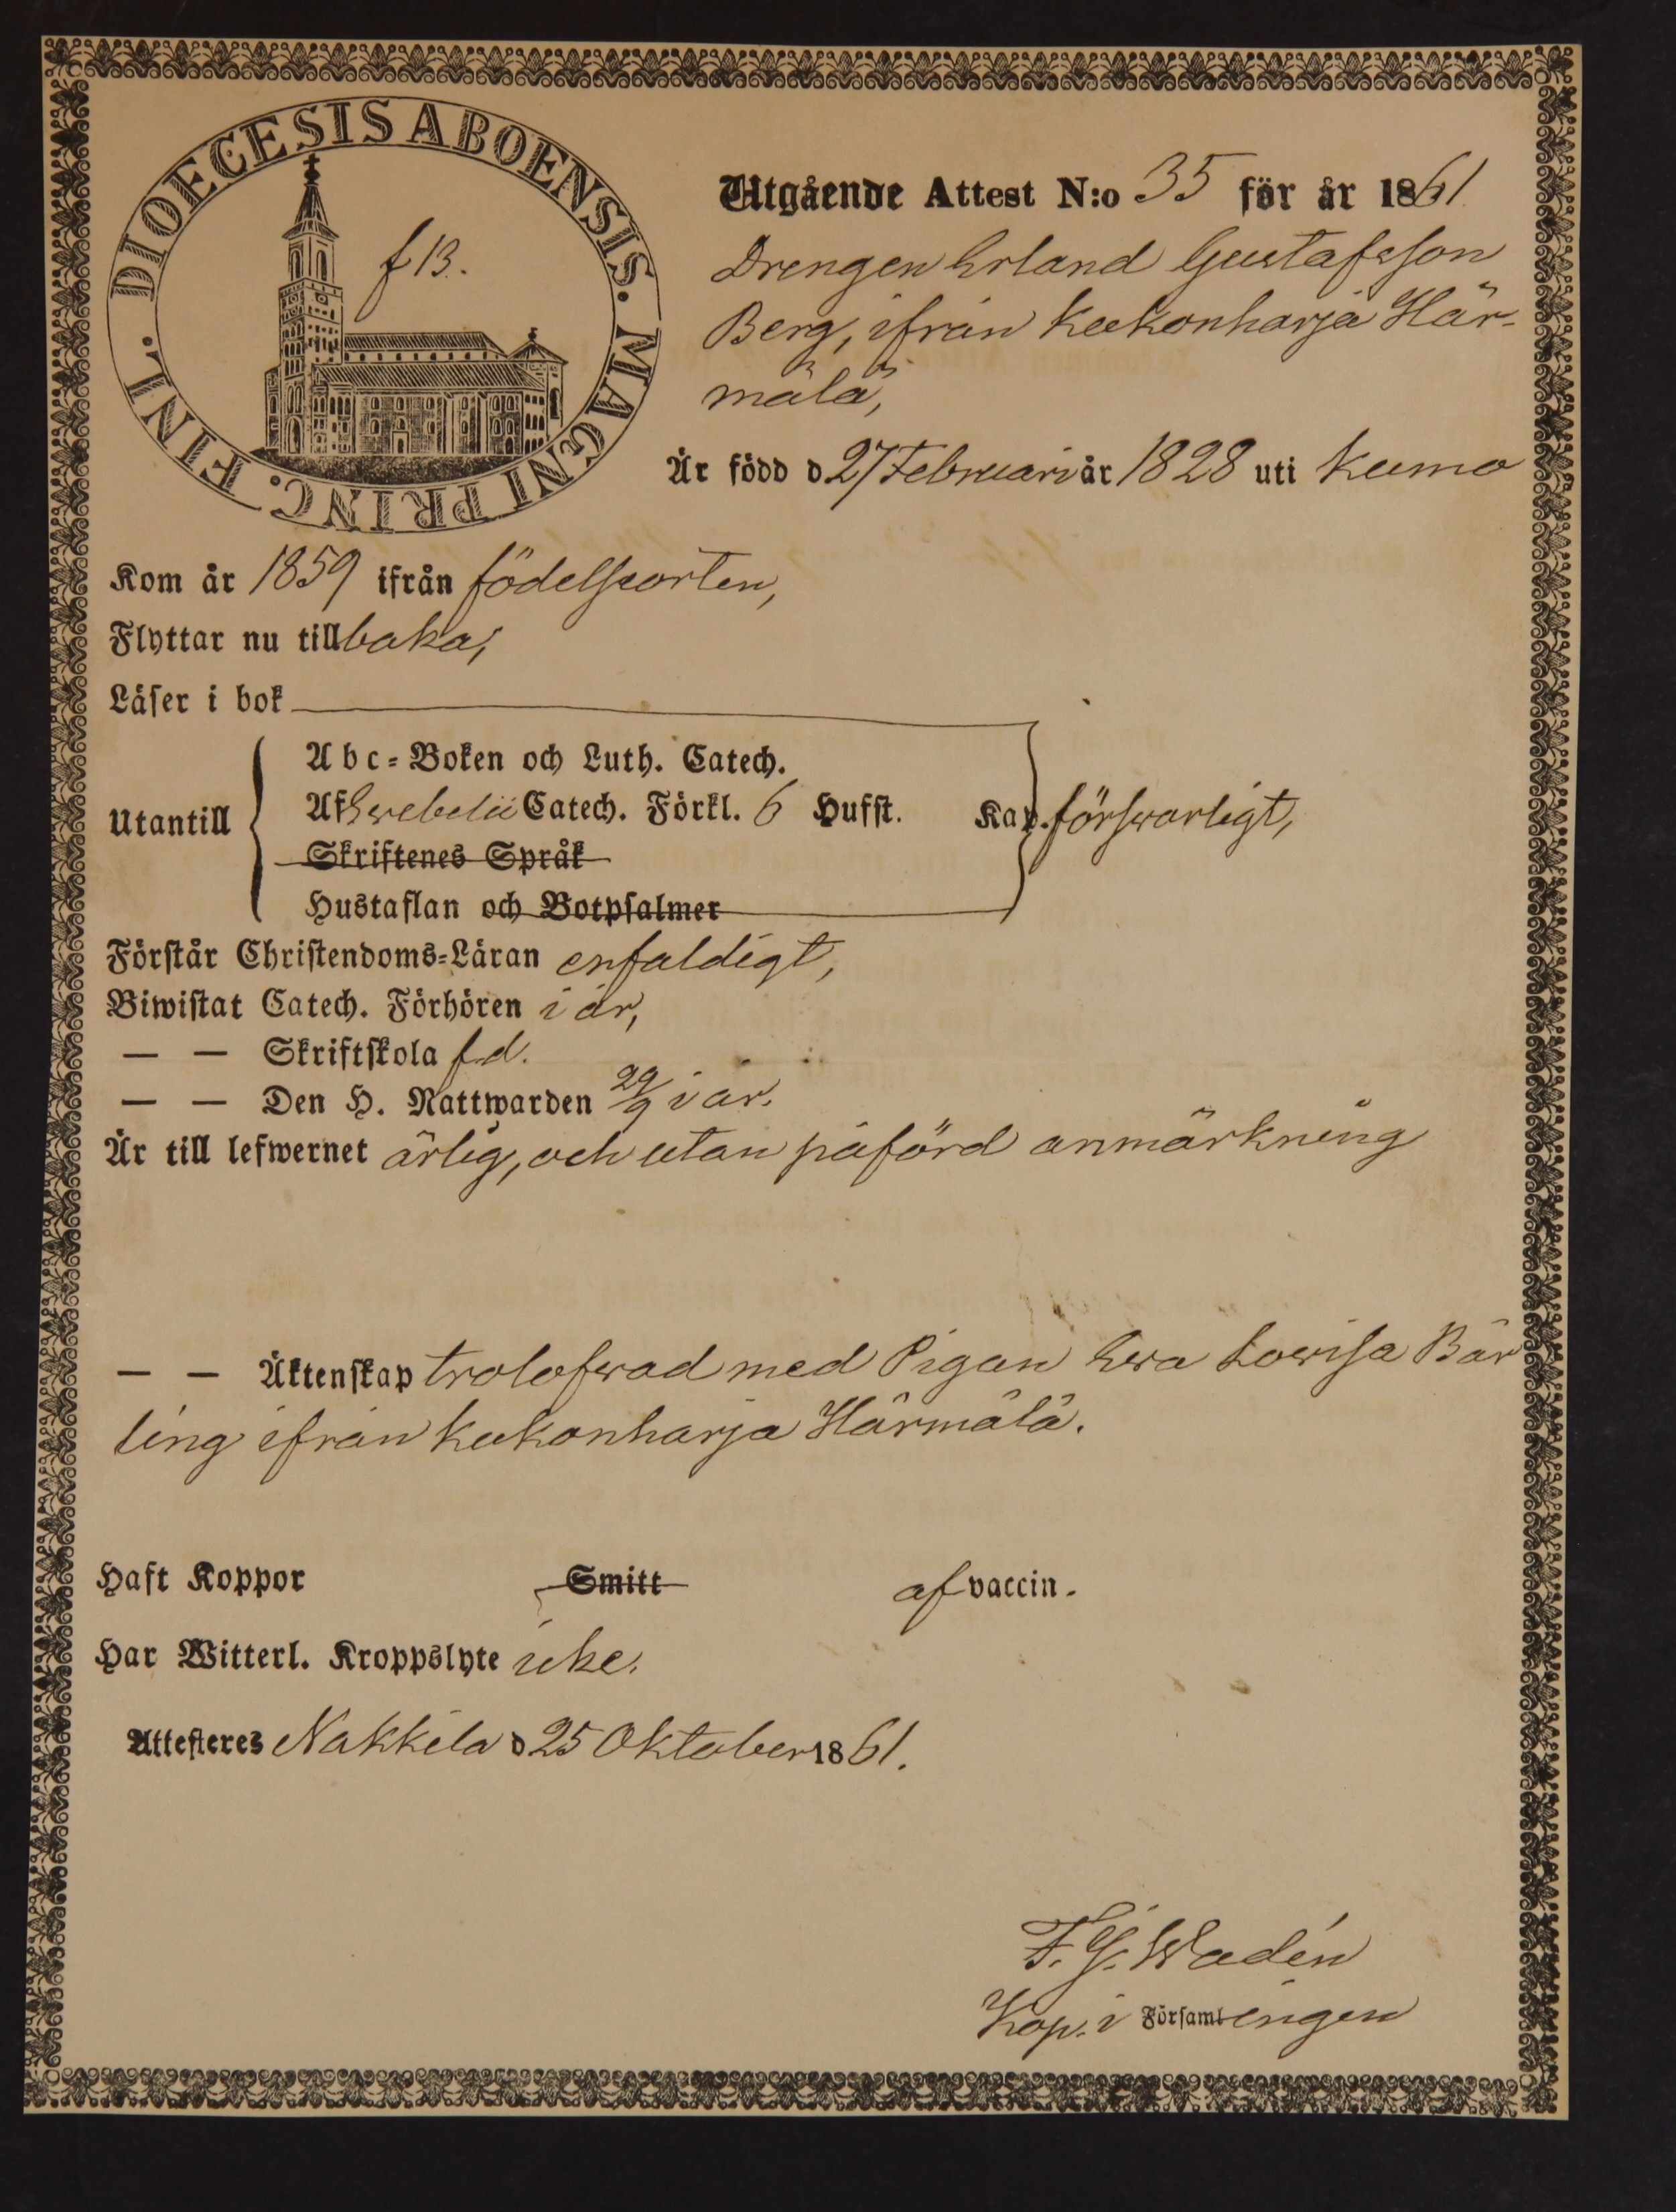 DIOECESIS ABOENSIS. MAGNI PRINC. FINL.
f 13.
Utgående Attest N:o 35 för år 1861
Drengen Erland Gustafsson
Berg, ifrån Keekonharja Här-
mälä,
Är född d 27 Februari år 1828 uti Kumo
Kom år 1859 ifrån födelseorten,
Flyttar nu tillbaka,
Läser i bok
Utantill
Abc-Boken och Luth. Catech.
Af Swebelii Catech. Förkl. 6 Hufst. Kap. förswarligt,
Skriftenes Språk
Hustaflan och Botpsalmer
Förstår Christendoms-Läran enfaldigt,
Biwistat Catech. Förhören i år,
— — Skriftskola f.d.
— — Den H. Nattwarden 29/9 i år.
Är till lefwernet ärlig, och utan påförd anmärkning
— — Äktenskap trolofwad med Pigan Ewa Lowisa Bär
ling ifrån Keekonharja Härmälä.
Haft Koppor Smitt af vaccin.
Har Witterl. Kroppslyte icke.
Attesteres Nakkila d 25 Oktober 1861.
F. G. Wadén
Kap. i Församlingen